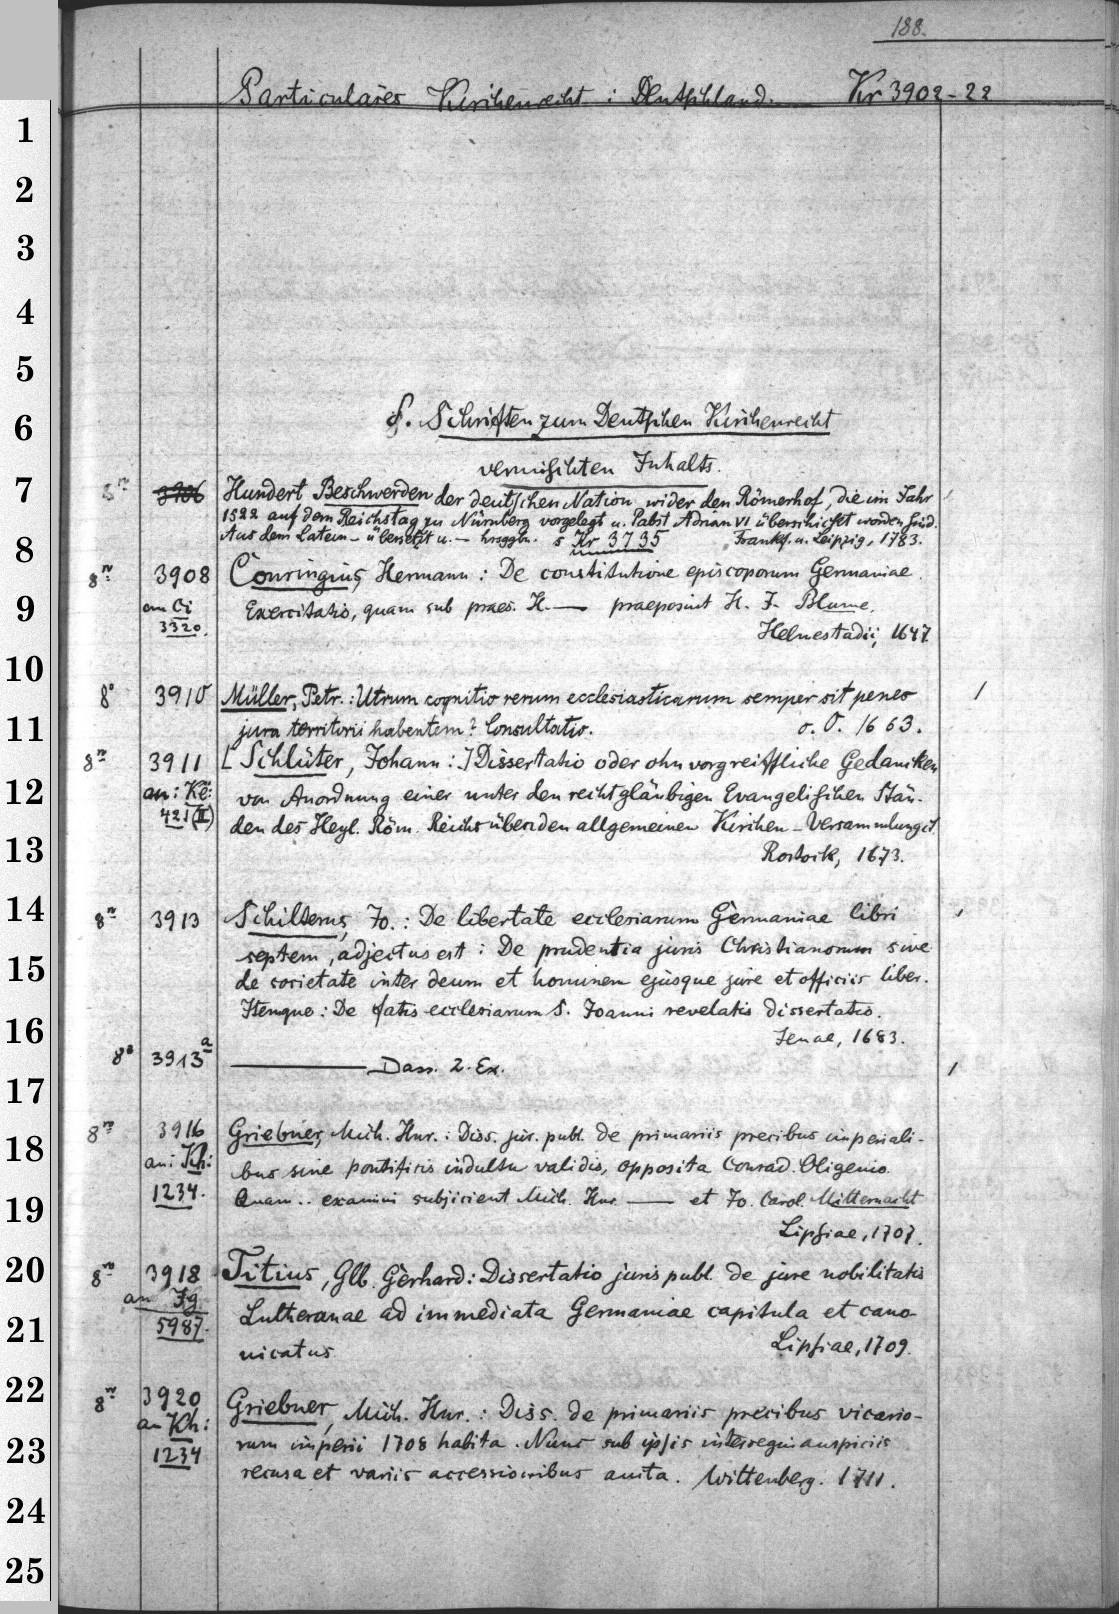 188.
Particulares Kirchenrecht i Deutschland. Kr 3902-22
1
2
3
4
5
6
f. Schriften zum Deutschen Kirchenrecht
vermischten Inhalts.
7
8n 3906 Hundert Beschwerden der deutschen Nation wider den Römerhof, die im Jahr
1522 auf dem Reichstag zu Nürnberg vorgelegt u. Pabst Adrian VI überschicket worden sind.
Aus dem Latein - übersetzt u. - hrsggbn. s Kr 3735 Frankf. u. Leipzig, 1783.
8
8n 3908 Conringius, Hermann: De constitutione episcoporum Germaniae.
9
an Ci Exercitatio, quam sub praes. H. — praeposuit H. J. Blume.
3320. Helmestadii, 1647
10
8° 3910 Müller, Petr.: Utrum cognitio rerum ecclesiasticarum semper sit penes
11
jura territorii habentem? Consultatio. o. O. 1663.
8n 3911 [Schlüter, Johann:] Dissertatio oder ohnvorgreiffliche Gedancken
12
an: Ke: von Anordnung einer unter den rechtgläubigen Evangelischen Stän-
421(II) den des Heyl. Röm. Reichs überiden allgemeinen Kirchen-Versammlung et
13
Rostock, 1673.
14
8n 3913 Schilterus, Jo.: De libertate ecclesiarum Germaniae libri
septem, adjectus est: De prudentia juris Christianorum sive
15
de societate inter deum et hominem ejusque jure et officiis liber.
Itemque: De fatis ecclesiarum S. Joanni revelatis dissertatio.
16
Jenae, 1683.
8° 3913a — Dass. 2. Ex.
17
8n 3916 Griebner, Mich. Hnr.: Diss. jur. publ. de primariis precibus imperiali-
18
an: Kh: bus sine pontificis indultu validis, opposita Conrad. Oligenio.
1234. Quam .. examini subjicient Mich. Hnr — et Jo. Carol. Mitternacht
19
Lipsiae, 1707.
20
8n 3918 Titius, Glb. Gerhard: Dissertatio juris publ. de jure nobilitatis
an Jg Lutheranae ad immediata Germaniae capitula et cano-
21
5987. nicatus Lipsiae, 1709.
22
8n 3920 Griebner, Mich. Hnr.: Diss. de primariis precibus vicario-
an Kh: rum imperii 1708 habita. Nunc sub ipsis interregni auspiciis
23
1234 recusa et variis accessionibus aucta. Wittenberg. 1711.
24
25